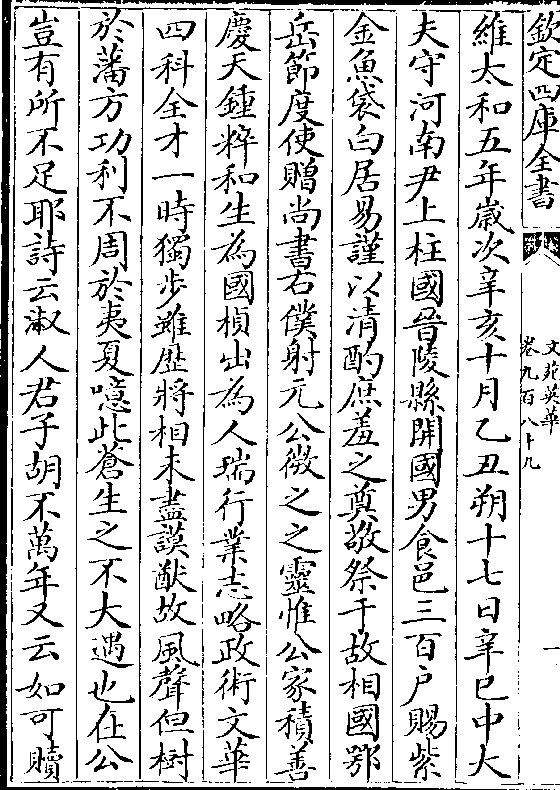 欽定四庫全書
文苑英華
卷九百八十九
一
維太和五年歲次辛亥十月乙丑朔十七日辛巳中大
夫守河南尹上柱國晉陵縣開國男食邑三百户賜紫
金魚袋白居易謹以清酌庶羞之奠敬祭于故相國鄂
岳節度使贈尚書右僕射元公微之之靈惟公家積善
慶天鍾粹和生為國楨出為人瑞行業志略政術文華
四科全才一時獨步雖歴將相未盡謨猷故風聲但樹
於藩方功利不周於夷夏噫此蒼生之不大遇也在公
豈有所不足耶詩云淑人君子胡不萬年又云如可贖